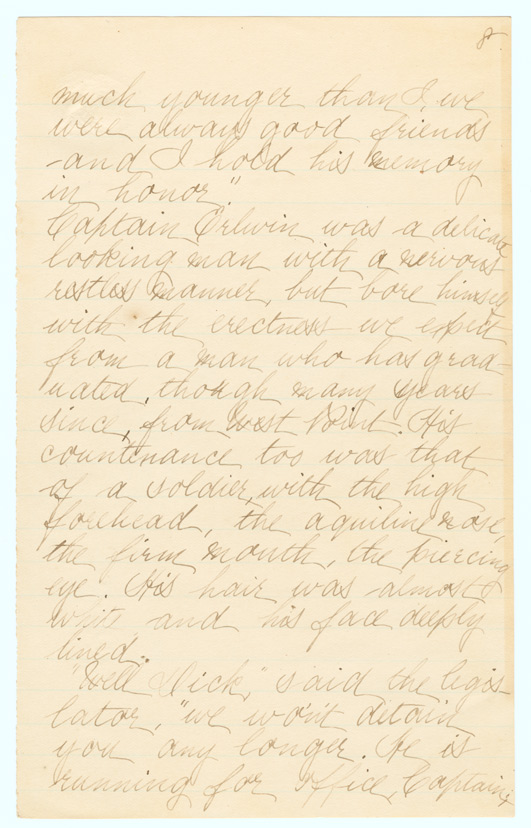 8
much younger than I, we
were always good friends
-and I hold his memory
in honor."
Captain Erlwin was a delicate
looking man with a nervous
restless manner, but bore himself
with the erectness we expect
from a man who has grad-
uated, though many years
since, from West Point. His
countenance too was that
of a soldier, with the high
forehead, the aquiline nose,
the firm mouth, the piercing
eye. His hair was almost
white and his face deeply
lined.
"Well Dick," said the legis-
lator, "we won't detain
you any longer. He is
running for office, Captain,